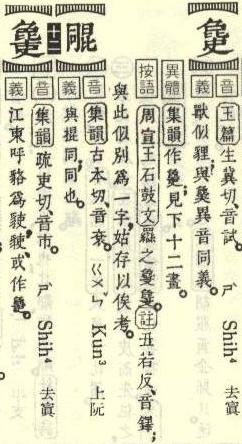 音 玉篇生冀切、音試 ㄕˋ Shih⁴ 去寘
義 獸似貍、與異音同義。
異體 集韻作見下十二畫。
按語 周宣王石鼓文之註丑若反、音鐸;
與此似別爲一字、姑存以俟考。
音 集韻古本切、音袞。ㄍㄨㄣˇ Kun³ 上阮
義 與掍同、同也。
十二
音 集韻疏吏切、音市。ㄕˋ Shih⁴ 去寘
義 江東呼貉爲、或作